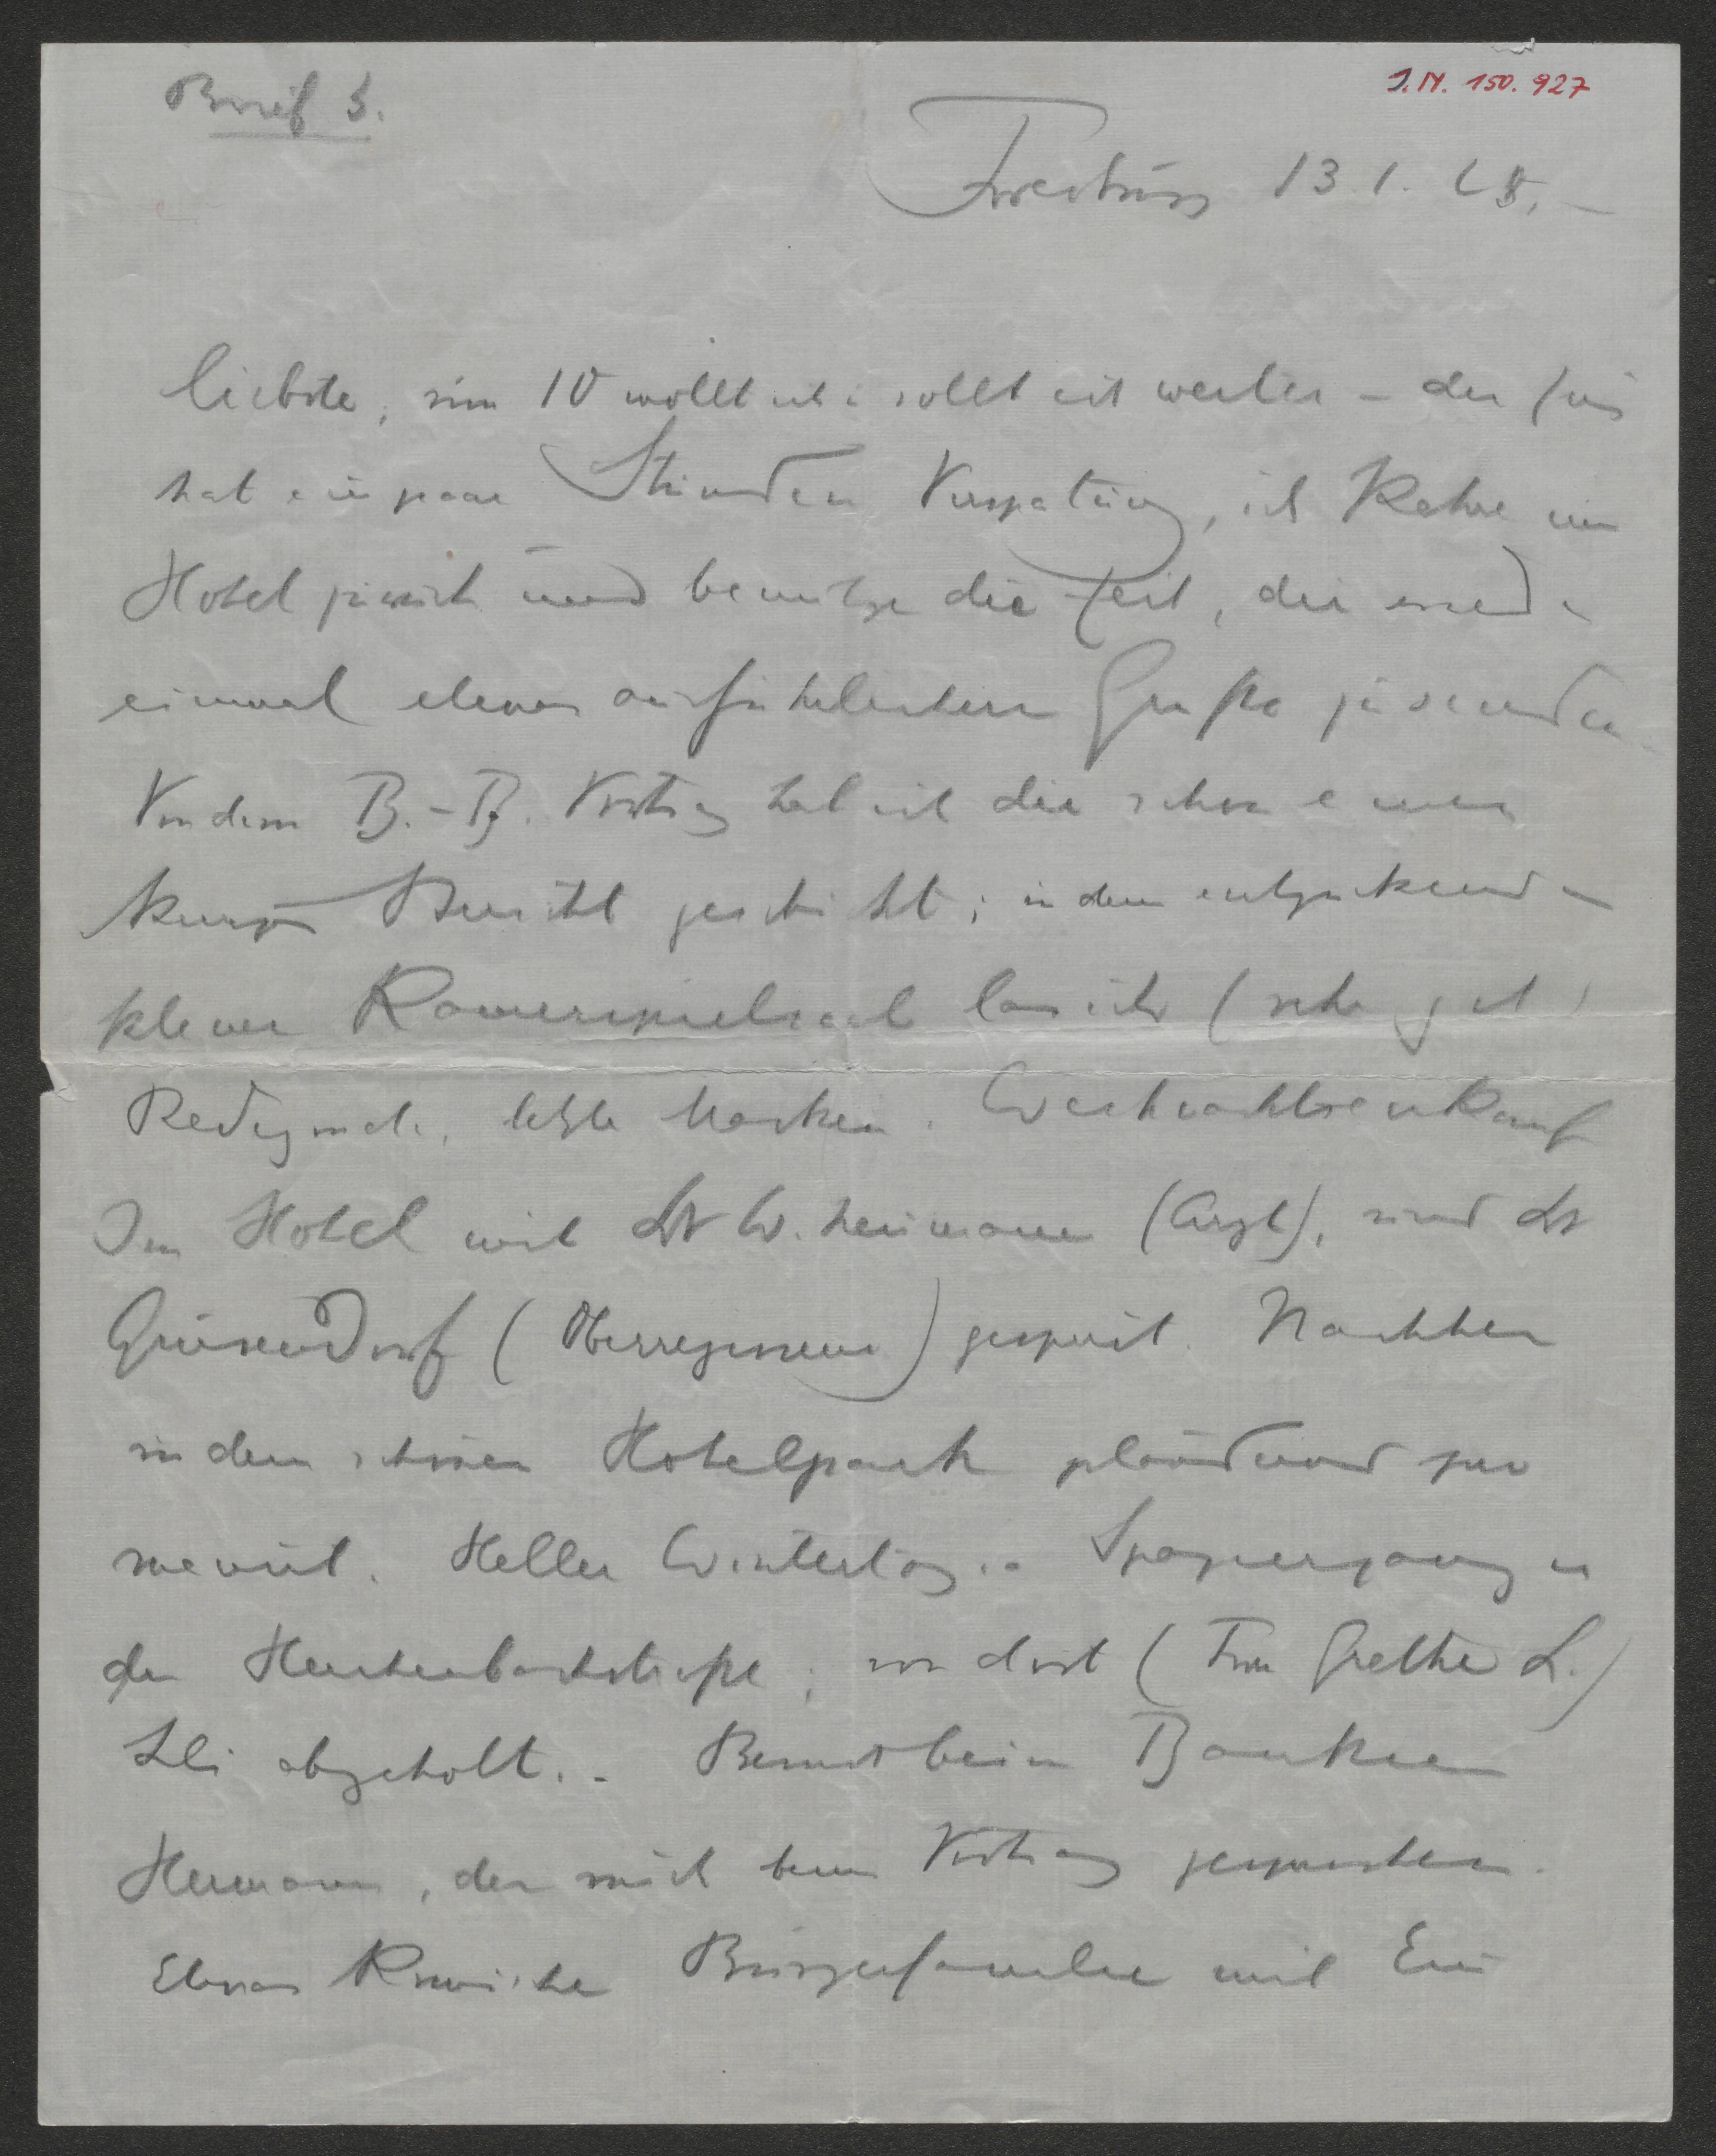 Brief 3.
I.N. 150.927
13. 1. 28. –
Liebste, um 10 wollt ich u sollt ich weiter – der Zug
hat ein paar Stunden Verspätung, ich kehre ins
Hotel zurück und benütze die Zeit, dir endl
einmal etwas ausführlichere Grüße zu senden.
Von dem B.-B. Vortrag hab ich dir schon einen
kurzen Bericht geschickt; in dem entzückenden
kleinen Kammerspielsaal las ich (sehr gut)
Redegonda, letzte Masken. Weihnachtseinkauf
Im Hotel mit Dr W. Heimann (Arzt), und Dr
(Oberregisseur) gespeist. Nachher
in dem schönen Hotelpark plaudernd
Heller Wintertag. – Spaziergang in
der; von dort (Frau Grethe L.)
abgeholt. – Besuch beim Bankier
Hermann, der mich beim Vortrag gesprochen.
Etwas komische Bürgerfamilie mit